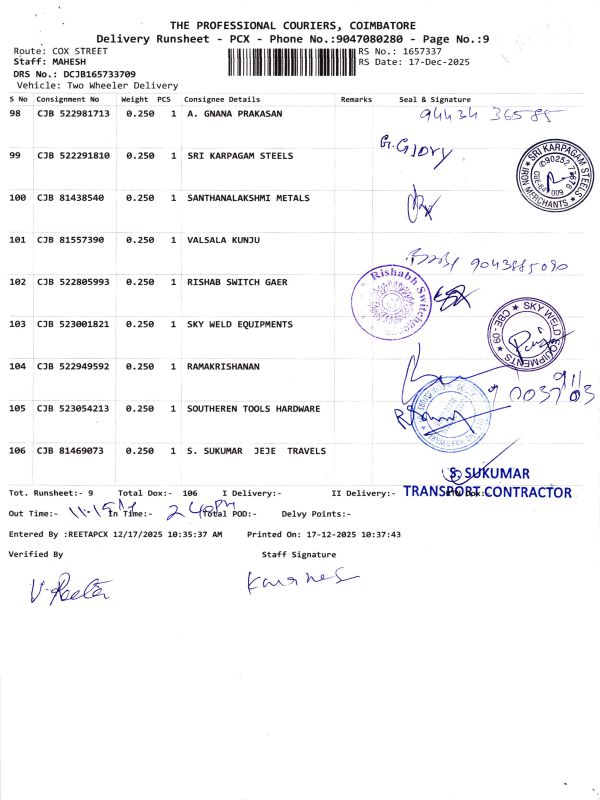 THE PROFESSIONAL COURIERS, COIMBATORE
Delivery Runsheet - PCX - Phone No.:9047080280 - Page No.:9
Route: COX STREET RS No.: 1657337
Staff: MAHESH RS Date: 17-Dec-2025
DRS No.: DCJB165733709
Vehicle: Two Wheeler Delivery
S No Consignment No Weight PCS Consignee Details Remarks Seal & Signature
98 CJB 522981713 0.250 1 A. GNANA PRAKASAN 94434 36585
99 CJB 522291810 0.250 1 SRI KARPAGAM STEELS G. Glory
SRI KARPAGAM STEELS
IRON MERCHANTS
100 CJB 81438540 0.250 1 SANTHANALAKSHMI METALS
101 CJB 81557390 0.250 1 VALSALA KUNJU 9043885090
102 CJB 522805993 0.250 1 RISHAB SWITCH GAER
Rishabh Switchgear
103 CJB 523001821 0.250 1 SKY WELD EQUIPMENTS
SKY WELD EQUIPMENTS CBE-09
104 CJB 522949592 0.250 1 RAMAKRISHANAN
105 CJB 523054213 0.250 1 SOUTHEREN TOOLS HARDWARE
106 CJB 81469073 0.250 1 S. SUKUMAR JEJE TRAVELS
S. SUKUMAR
TRANSPORT CONTRACTOR
Tot. Runsheet:- 9 Total Dox:- 106 I Delivery:- II Delivery:-
Out Time:- In Time:- 2 40PM Total POD:- Delvy Points:-
Entered By :REETAPCX 12/17/2025 10:35:37 AM Printed On: 17-12-2025 10:37:43
Verified By Staff Signature
V. Reeta